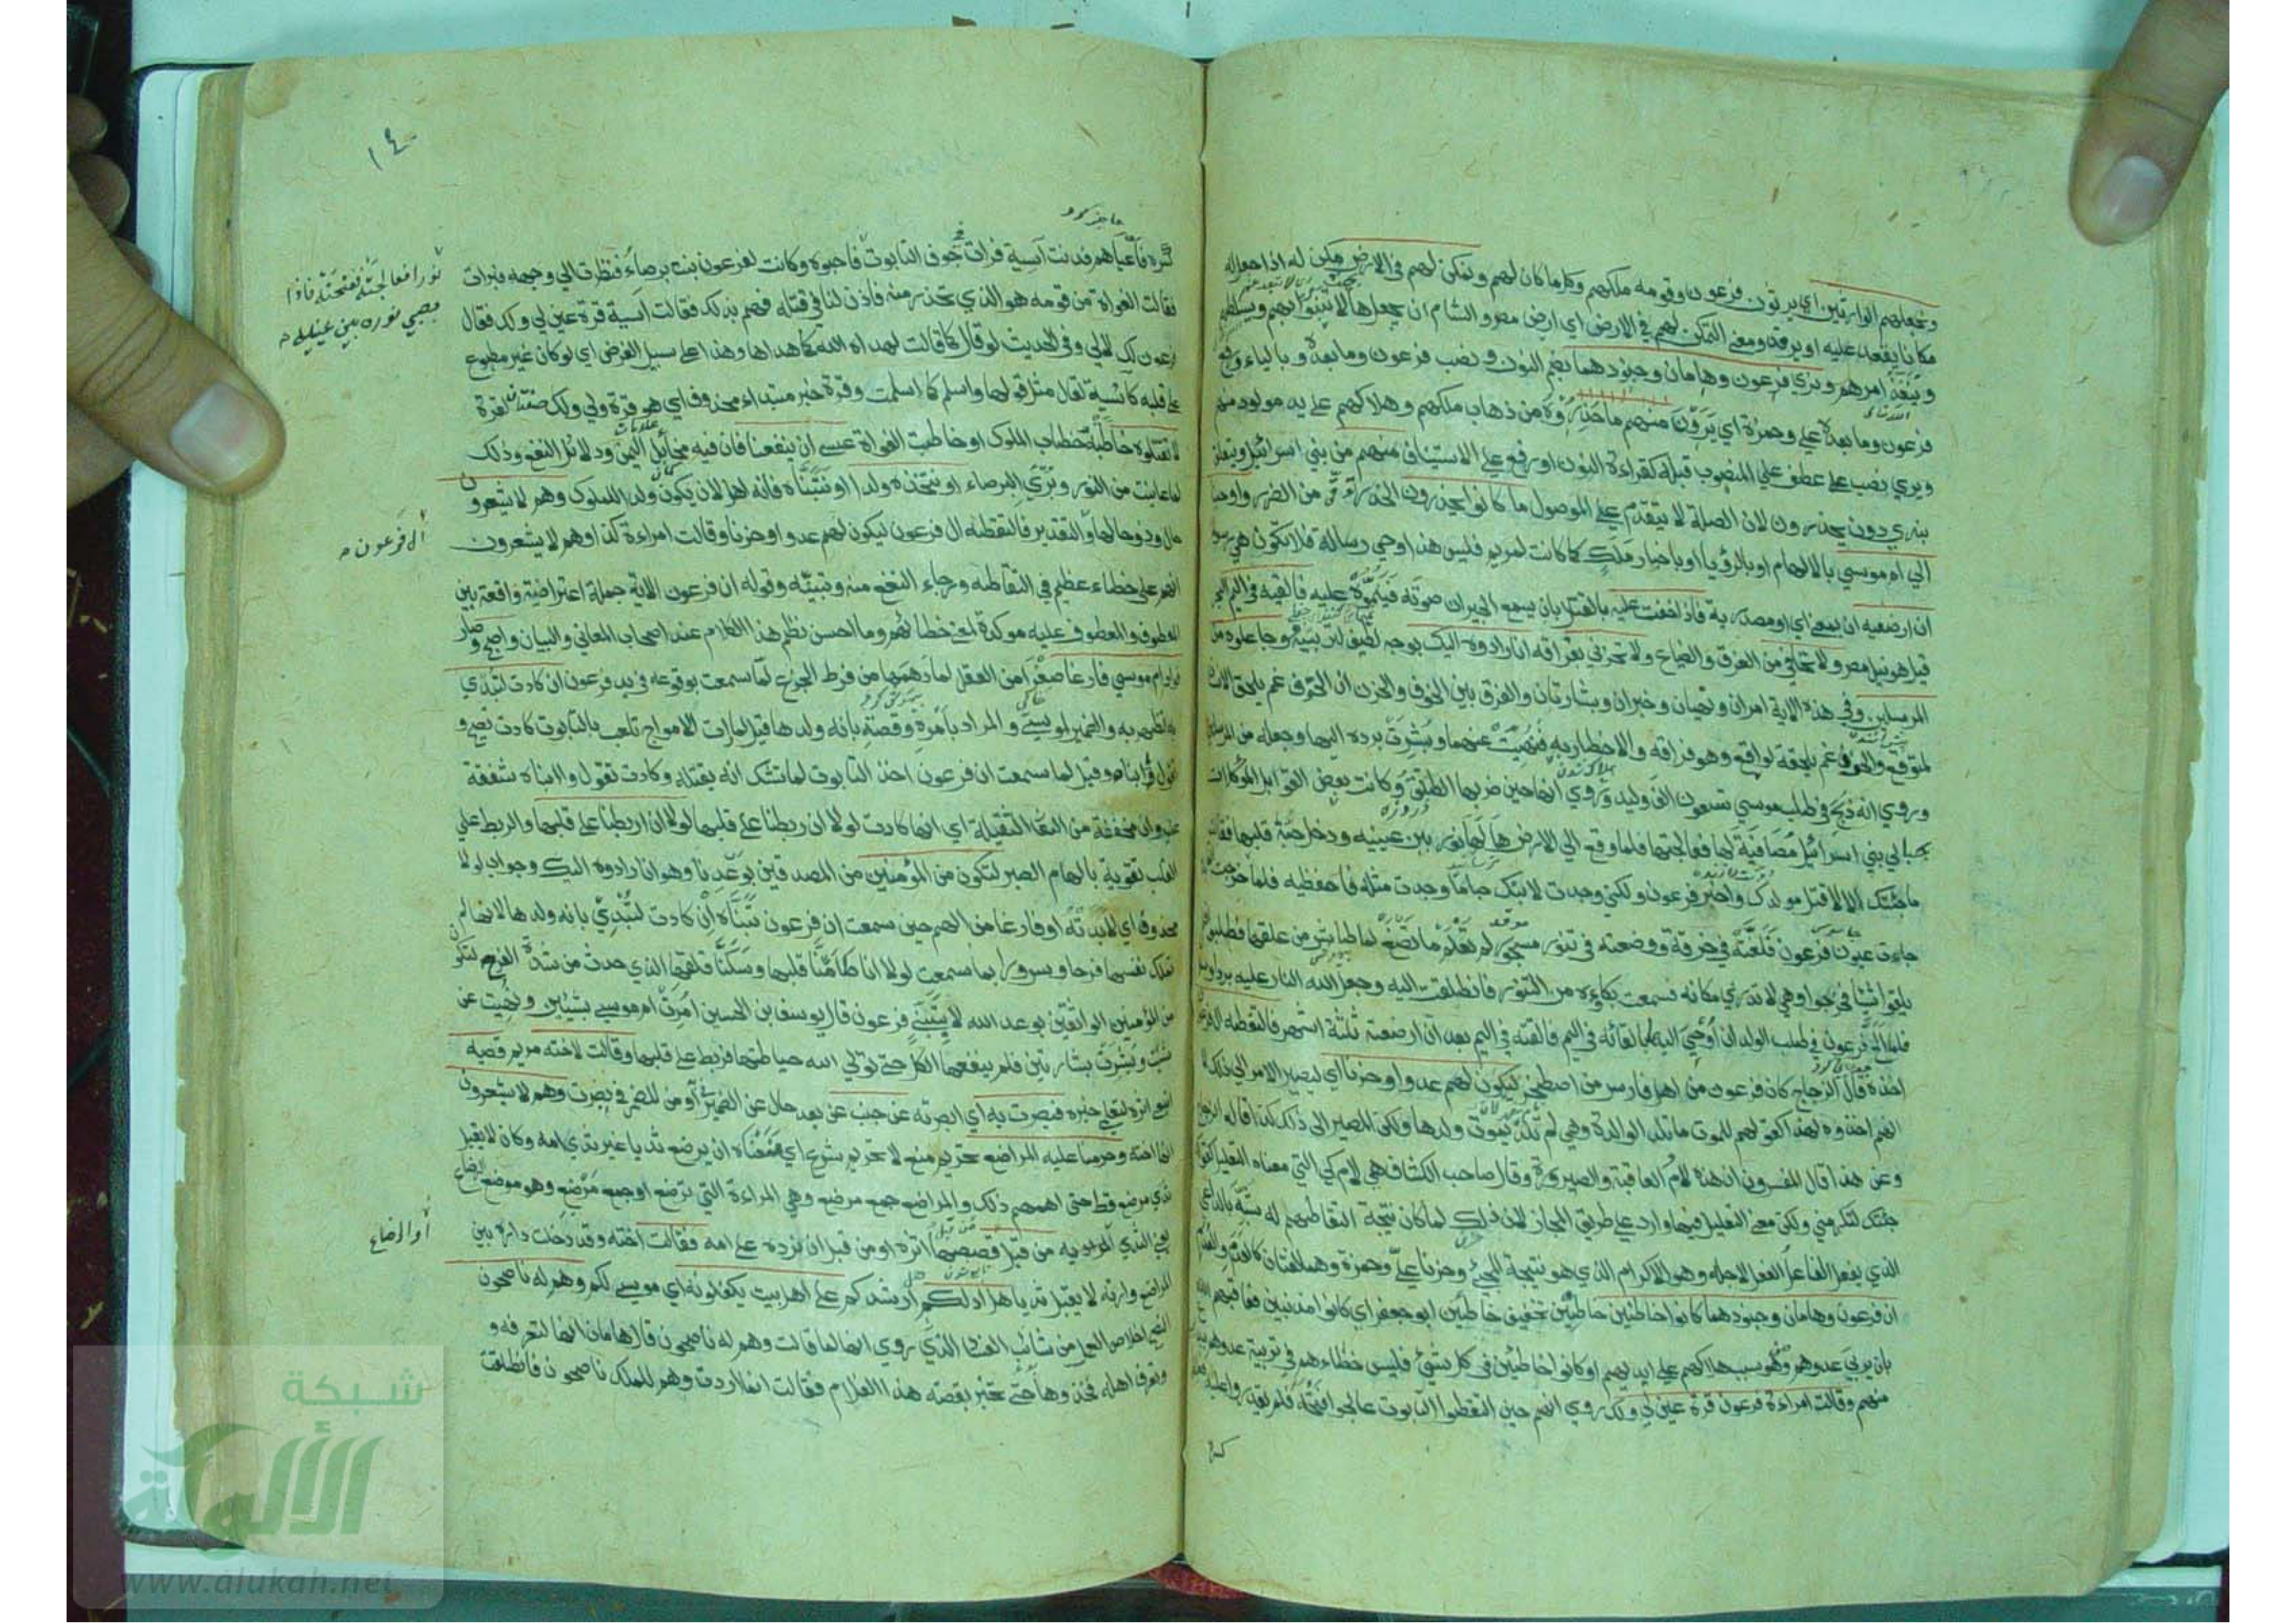 ونجعلهم الوارثين اي يرثون فرعون وقومه ملكهم وكل ما كان لهم ونمكن لهم في الارض مكن له اذا جعل له
مكانا يقعد عليه او يرقد ومعنى التمكن لهم في الارض اي ارض مصر والشام ان يجعلها لا تنبو بهم ويسلطهم
وينفذ امرهم ونري فرعون وهامان وجنودهما بضم النون ونصب فرعون وما بعده وبالياء ورفع
فرعون وما بعده علي وحمزة اي يرون منهم ما حذروه من ذهاب ملكهم وهلاكهم على يد مولود منهم
ويري نصب على عطف على المنصوب قبله كقراءة النون او رفع على الاستيناف منهم من بني اسرائيل ويتعلق
بنري دون يحذرون لان الصلة لا تتقدم على الموصول ما كانوا يحذرون الحذر التوقي من الضرر واوحينا
الي ام موسي بالالهام او بالرؤيا او باخبار ملك كما كانت لمريم فليس هذا وحي رسالة فلا تكون هي رسولا
ان ارضعيه ان بمعنى اي او مصدرية فاذا خفت عليه بالقتل بان يسمع الجيران صوته فينموا عليه فالقيه في اليم البحر
قيل هو نيل مصر ولا تخافي من الغرق والضياع ولا تحزني بفراقه انا رادوه اليك بوجه لطيف لتربيته وجاعلوه من
المرسلين وفي هذه الاية امران ونهيان وخبران وبشارتان والفرق بين الخوف والحزن ان الخوف غم يلحق الانسان
لمتوقع والحزن غم يلحقه لواقع وهو فراقه والاخطار به فنهيت عنهما وبشرت برده اليها وجعله من المرسلين
وروي انه ذبح في طلب موسي تسعون الف وليد وروي انها حين ضربها الطلق وكانت بعض القوابل الموكلات
بحبالي بني اسرائيل مصافية لها فعالجتها فلما وقع الي الارض هالها نور بين عينيه ودخل حبه قلبها فقالت
ما جئتك الا لاقتل مولدك واخبر فرعون ولكني وجدت لابنك حبا ما وجدت مثله فاحفظيه فلما خرجت
جاءت عيون فرعون فلفته في خرقة ووضعته في تنور مسجور لم تعلم ما تصنع لما طاش من عقلها فطلبوا فلم
يلقوا شيئا فخرجوا وهي لا تدري مكانه فسمعت بكاءه من التنور فانطلقت اليه وجعل الله النار عليه بردا وسلاما
فلما الح فرعون في طلب الولدان اوحي اليها بالقائه في اليم فالقته في اليم بعد ان ارضعته ثلثة اشهر فالتقطه ال فرعون
اخذه قال الزجاج كان فرعون من اهل فارس من اصطخر ليكون لهم عدوا وحزنا اي ليصير الامر الي ذلك لا
انهم اخذوه لهذا كقولهم للموت ما تلد الوالدة وهي لم تلد ليموت ولدها ولكن المصير الى ذلك كذا قاله الزجاج
وعن هذا قال المفسرون ان هذه لام العاقبة والصيرورة وقال صاحب الكشاف هي لام كي التي معناه التعليل كقولك
جئتك لتكرمني ولكن معنى التعليل فيها وارد على طريق المجاز لان ذلك لما كان نتيجة التقاطهم له شبه بالداعي
الذي يفعل الفاعل الفعل لاجله وهو الاكرام الذي هو نتيجة المجئ وحزنا علي وحمزة وهما لغتان كالعدم والعدم
ان فرعون وهامان وجنودهما كانوا خاطئين خاطين تخفيف خاطئين ابو جعفر اي كانوا مذنبين فعاقبهم الله
بان ربى عدوهم ومن هو سبب هلاكهم على ايديهم او كانوا خاطئين في كل شئ فليس خطاءهم في تربية عدوهم ببدع
منهم وقالت امراءة فرعون قرة عين لي ولك روي انهم حين التقطوا التابوت عالجوا فتحه فلم يقدروا عليه فعالجوا
كسره
١٤٠
كسره فاعياهم فدنت آسية فرات في جوف التابوت فاحبوه وكانت لفرعون بنت برصاء فنظرت الي وجهه فبرات
نورا فعالجته ففتحته فاذا
بصبي نوره بين عينيه
فقالت الغواة من قومه هو الذي تحذر منه فاذن لنا في قتله فهم بذلك فقالت آسية قرة عين لي ولك فقال
فرعون لك لا لي وفي الحديث لو قال كما قالت لهداه الله كما هداها وهذا على سبيل الفرض اي لو كان غير مطبوع
على قلبه كآسية لقال مثل قولها واسلم كما اسلمت وقرة خبر مبتداء محذوف اي هو قرة ولي ولك صفتان لقرة
لا تقتلوه خاطبته خطاب الملوك او خاطبت الغواة عسى ان ينفعنا فان فيه مخايل اليمن ودلائل النفع وذلك
لما عاينت من النور وبرئ البرصاء او نتخذه ولدا او نتبناه فانه اهل لان يكون ولد الملوك وهم لا يشعرون
حال وذو حالها والتقدير فالتقطه ال فرعون ليكون لهم عدوا وحزنا وقالت امراءة كذا وهم لا يشعرون
ال فرعون
انهم على خطاء عظيم في التقاطه ورجاء النفع منه وتبنيه وقوله ان فرعون الاية جملة اعتراضية واقعة بين
المعطوف والمعطوف عليه موكدة لمعنى خطائهم وما احسن نظم هذا الكلام عند اصحاب المعاني والبيان واصبح وصار
فواد ام موسي فارغا صفرا من العقل لما دهمها من فرط الجزع لما سمعت بوقوعه في يد فرعون ان كادت لتبدي
به لتظهر به والضمير لموسى والمراد بامره وقصته بانه ولدها قيل لما رات الامواج تلعب بالتابوت كادت تصيح و
تقول وا ابناه وقيل لما سمعت ان فرعون اخذ التابوت لما تشك انه يقتله وكادت تقول وا ابناه شفقة
عليه وان مخففة من الثقيلة اي انها كادت لولا ان ربطنا على قلبها لولا ان ربطنا على قلبها والربط على
القلب تقوية بالهام الصبر لتكون من المؤمنين من المصدقين بوعدنا وهو انا رادوه اليك وجواب لولا
محذوف اي لابدته او فارغا من الهم حين سمعت ان فرعون تبناه ان كادت لتبدي بانه ولدها لانها لم
تملك نفسها فرحا وسرورا بما سمعت لولا انا طامنا قلبها وسكنا قلقها الذي حدث من شدة الفرح لتكون
من المؤمنين الواثقين بوعد الله لا بتبني فرعون قال يوسف بن الحسين امرت ام موسى بشيئين ونهيت عن
شيئين وبشرت بشارتين فلم ينفعها الكل حتى تولي الله حياطتها فربط على قلبها وقالت لاخته مريم قصيه
اتبعي اثره لتعلمي خبره فبصرت به اي ابصرته عن جنب عن بعد حال عن الضمير او من الضمير في بصرت وهم لا يشعرون
انها اخته وحرمنا عليه المراضع تحريم منع لا تحريم شرع اي منعناه ان يرضع ثديا غير ثدي امه وكان لا يقبل
ثدي مرضع قط حتى اهمهم ذلك والمراضع جمع مرضع وهي المراءة التي ترضع او جمع مرضع وهو موضع الرضاع
او الرضاع
يعني الثدي من قبل قصصها اثره او من قبل ان نرده على امه فقالت اخته وقد دخلت داره بين
المراضع وراته لا يقبل ثديا هل ادلكم ارشدكم على اهل بيت يكفلونه اي موسى لكم وهم له ناصحون
النصح اخلاص العمل من شائب الفساد روي انها لما قالت وهم له ناصحون قال هامان انها لتعرفه و
وتعرف اهله فخذوها حتى تخبر بقصة هذا الغلام فقالت انما اردت وهم للملك ناصحون فانطلقت
شبكة
الألوكة
www.alukah.net